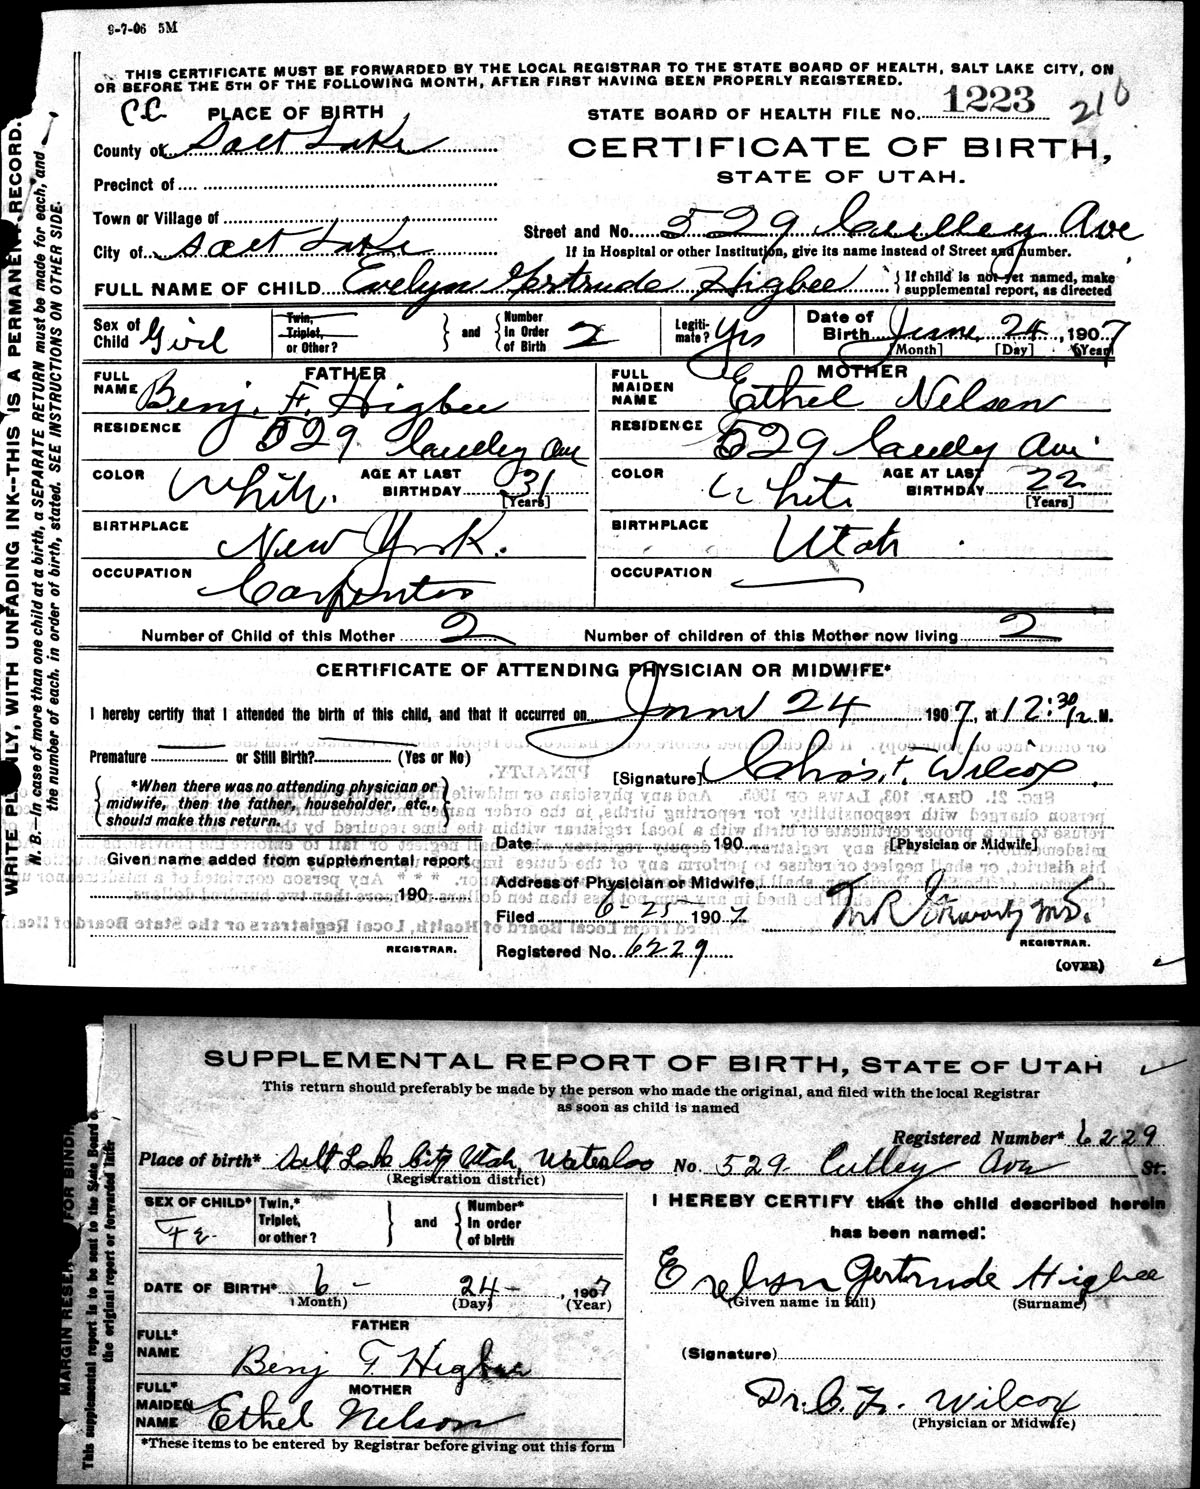 9-7-06 5M
THIS CERTIFICATE MUST BE FORWARDED BY THE LOCAL REGISTRAR TO THE STATE BOARD OF HEALTH, SALT LAKE CITY, ON
OR BEFORE THE 5TH OF THE FOLLOWING MONTH, AFTER FIRST HAVING BEEN PROPERLY REGISTERED.
PLACE OF BIRTH
STATE BOARD OF HEALTH FILE NO. 1223 210
County of Salt Lake
CERTIFICATE OF BIRTH,
STATE OF UTAH.
Precinct of
Town or Village of
Street and No. 529 Culley Ave
City of Salt Lake
If in Hospital or other Institution, give its name instead of Street and number.
FULL NAME OF CHILD Evelyn Gertrude Higbee
If child is not yet named, make
supplemental report, as directed
Sex of Child Girl
Twin, Triplet, or Other? and Number In Order of Birth 2
Legiti- mate? Yes
Date of Birth June 24, 1907
[Month] [Day] [Year]
FATHER
FULL NAME Benj. F. Higbee
RESIDENCE 529 Cauley Ave
COLOR White. AGE AT LAST BIRTHDAY 31
[Years]
BIRTHPLACE New York.
OCCUPATION Carpenter
MOTHER
FULL MAIDEN NAME Ethel Nelson
RESIDENCE 529 Cauley Ave
COLOR White AGE AT LAST BIRTHDAY 22
[Years]
BIRTHPLACE Utah
OCCUPATION
Number of Child of this Mother 2 Number of children of this Mother now living 2
CERTIFICATE OF ATTENDING PHYSICIAN OR MIDWIFE*
I hereby certify that I attended the birth of this child, and that it occurred on June 24 1907, at 12:30 M.
Premature or Still Birth? (Yes or No)
[Signature] Chas. F. Wilcox
*When there was no attending physician or
midwife, then the father, householder, etc.,
should make this return.
Date 190 [Physician or Midwife]
Given name added from supplemental report
190
REGISTRAR.
Address of Physician or Midwife
Filed 6-25 1907
REGISTRAR.
Registered No. 6229
(OVER)
WRITE PLAINLY, WITH UNFADING INK--THIS IS A PERMANENT RECORD.
N. B.--In case of more than one child at a birth, a SEPARATE RETURN must be made for each, and
the number of each, in order of birth, stated. SEE INSTRUCTIONS ON OTHER SIDE.
SUPPLEMENTAL REPORT OF BIRTH, STATE OF UTAH
This return should preferably be made by the person who made the original, and filed with the local Registrar
as soon as child is named
Registered Number* 6229
Place of birth* Salt Lake City Utah, Waterloo No. 529 Culley Ave St.
(Registration district)
SEX OF CHILD* Fe-
Twin,* Triplet, or other? and Number* In order of birth
I HEREBY CERTIFY that the child described herein
has been named:
DATE OF BIRTH* 6- 24-, 1907
(Month) (Day) (Year)
Evelyn Gertrude Higbee
(Given name in full) (Surname)
FATHER
FULL* NAME Benj F. Higbee
MOTHER
FULL* MAIDEN NAME Ethel Nelson
(Signature)
Dr. C. F. Wilcox
(Physician or Midwife)
*These items to be entered by Registrar before giving out this form
This supplemental report is to be sent to the State Board o
the original report or forwarded later